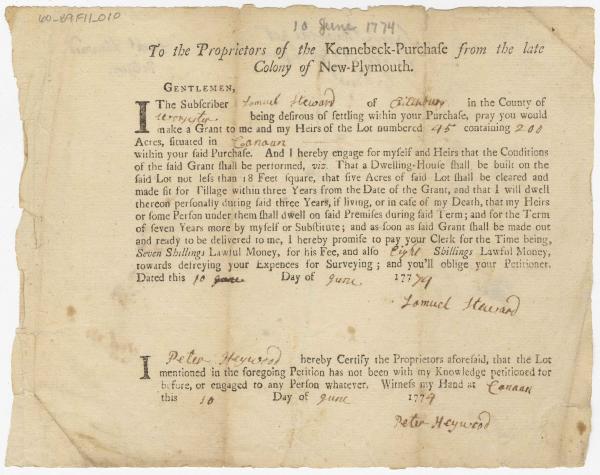 60-89F11_010
10 June 1774
To the Proprietors of the Kennebeck-Purchaſe from the late
Colony of New-Plymouth.
GENTLEMEN,
I The Subſcriber Samuel Steward of in the County of
Worſester being deſirous of ſettling within your Purchaſe, pray you would
make a Grant to me and my Heirs of the Lot numbered 45 containing 200
Acres, ſituated in Canaan
within your ſaid Purchaſe. And I hereby engage for myſelf and Heirs that the Conditions
of the ſaid Grant ſhall be performed, viz. That a Dwelling-Houſe ſhall be built on the
ſaid Lot not leſs than 18 Feet ſquare, that five Acres of ſaid Lot ſhall be cleared and
made fit for Tillage within three Years from the Date of the Grant, and that I will dwell
thereon perſonally during ſaid three Years, if living, or in caſe of my Death, that my Heirs
or ſome Perſon under them ſhall dwell on ſaid Premiſes during ſaid Term; and for the Term
of ſeven Years more by myſelf or Subſtitute; and as ſoon as ſaid Grant ſhall be made out
and ready to be delivered to me, I hereby promiſe to pay your Clerk for the Time being,
Seven Shillings Lawful Money, for his Fee, and alſo Eight Shillings Lawful Money,
towards defreying your Expences for Surveying; and you'll oblige your Petitioner.
Dated this 10 June Day of June 1774
Samuel Steward
I Peter Heywood hereby Certify the Proprietors aforeſaid, that the Lot
mentioned in the foregoing Petition has not been with my Knowledge petitioned for
before, or engaged to any Perſon whatever. Witneſs my Hand at Canaan
this 10 Day of June 1774
Peter Heywood